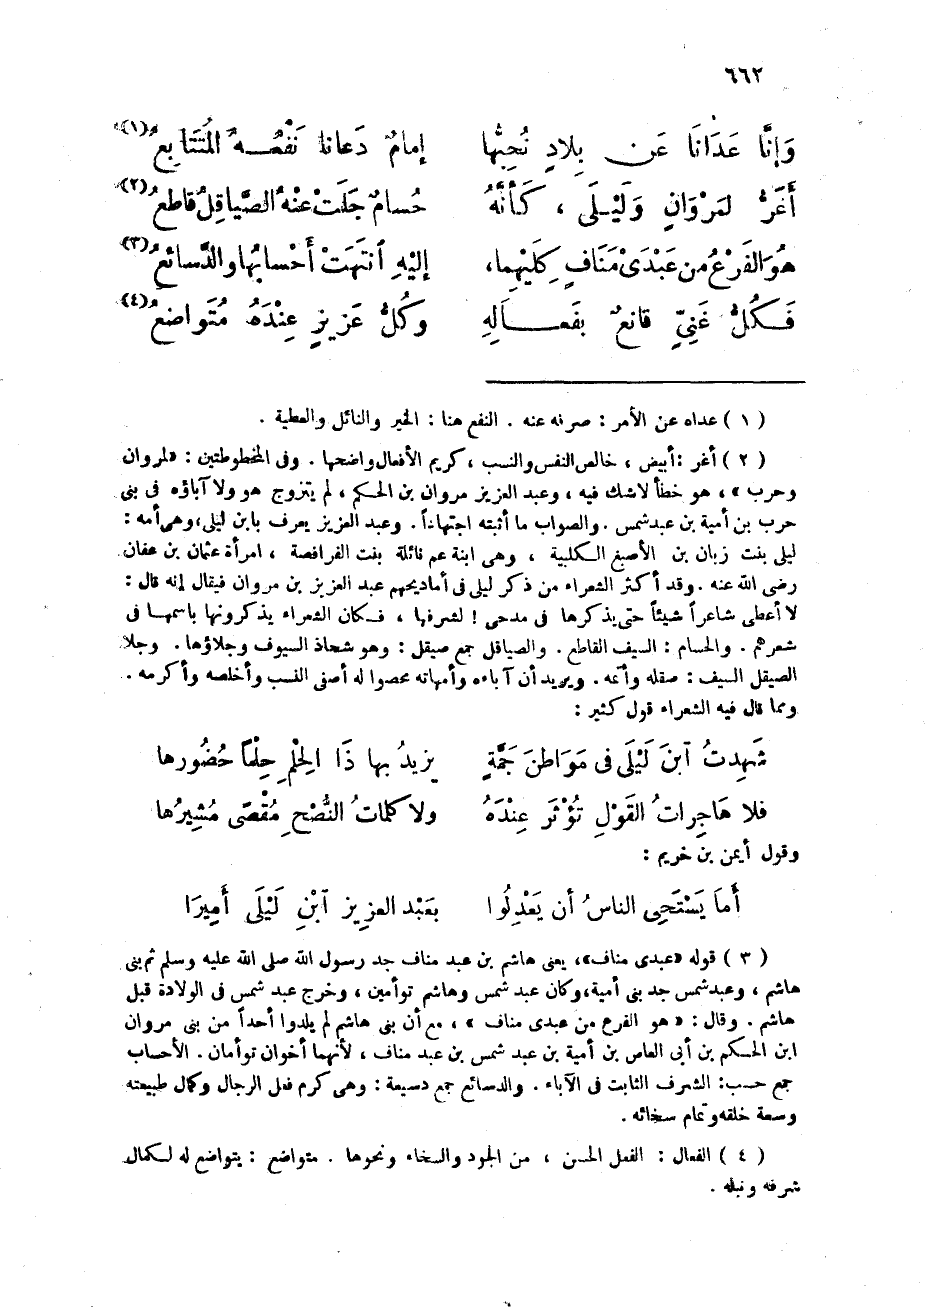 ٦٦٢
وَإِنَّا عَدَانَا عَن بِلادٍ نُحِبُّها إمامٌ دَعانا نَفْعُــهُ المُتَتَابِعُ(١)
أَغَرُّ لمَرْوَانٍ وَلَيْــلَى ، كَأَنَّهُ حُسامٌ جَلَتْ عنْهُ الصَّياقِلُ قاطعُ(٢)
هُوَ الفَرْعُ من عَبْدَىْ مَنَافٍ كِلَيْهِما، إليْهِ انتَهَتْ أَحْسابُها والدَّسائعُ(٣)
فَــكُلُّ غَنِيٍّ قانعٌ بفَعــــالِهِ وكُلُّ عَزيزٍ عِنْدَهُ مُتَواضعُ(٤)
( ١ ) عداه عن الأمر : صرفه عنه . النفع هنا : الخير والنائل والعطية .
( ٢ ) أغر : أبيض ، خالص النفس والنسب ، كريم الأفعال واضحها . وفى المخطوطتين : «لمروان
وحرب» ، هو خطأ لا شك فيه ، وعبد العزيز مروان بن الحكم ، لم يتزوج هو ولا آباؤه فى بنى
حرب بن أمية بن عبد شمس . والصواب ما أثبته اجتهاداً . وعبد العزيز يعرف بابن ليلى، وهى أمه :
ليلى بنت زبان بن الأصبغ الــكلبية ، وهى ابنة عم نائلة بنت الفرافصة ، امرأة عثمان بن عفان
رضى الله عنه . وقد أكثر الشعراء من ذكر ليلى فى أماديحهم عبد العزيز بن مروان فيقال إنه قال :
لا أعطى شاعراً شيئاً حتى يذكرها فى مدحى ! لشرفها ، فــكان الشعراء يذكرونها باسمهــا فى
شعرهم . والحسام : السيف القاطع . والصياقل جمع صيقل : وهو شحاذ السيوف وجلاؤها . وجلا
الصيقل السيف : صقله وأنمه . ويريد أن آباءه وأمهاته محصوا له أصفى النسب وأخلصه وأكرمه .
ومما قال فيه الشعراء قول كثير :
شَهِدتُ ابنَ لَيْلَى فى مَوَاطنَ جَمَّةٍ يزيدُ بها ذَا الحِلْمِ حِلْمًا حُضُورها
فلا هَاجِراتُ القَوْلِ تُؤْثَر عِنْدَهُ ولا كلماتُ النُّصْحِ مُقْصًى مُشِيرُها
وقول أيمن بن خريم :
أَمَا يَسْتَحِى الناسُ أن يَعْدِلُوا بعَبْد العزيز ابْنِ لَيْلَى أَمِيرَا
( ٣ ) قوله «عبدى مناف»، يعنى هاشم بن عبد مناف جد رسول الله صلى الله عليه وسلم ثم بنى
هاشم ، وعبد شمس جد بنى أمية، وكان عبد شمس وهاشم توأمين ، وخرج عبد شمس فى الولادة قبل
هاشم . وقال : « هو الفرع من عبدى مناف » ، مع أن بنى هاشم لم يلدوا أحداً من بنى مروان
ابن الحــكم بن أبى العاص بن أمية بن عبد شمس بن عبد مناف ، لأنهما أخوان توأمان . الأحساب
جمع حسب: الشرف الثابت فى الآباء . والدسائع جمع دسيعة : وهى كرم فعل الرجال وكمال طبيعته
وسعة خلقه وتمام سخائه .
( ٤ ) الفعال : الفعل الحسن ، من الجود والسخاء ونحوها . متواضع : يتواضع له لــكمال
شرفه ونبله .